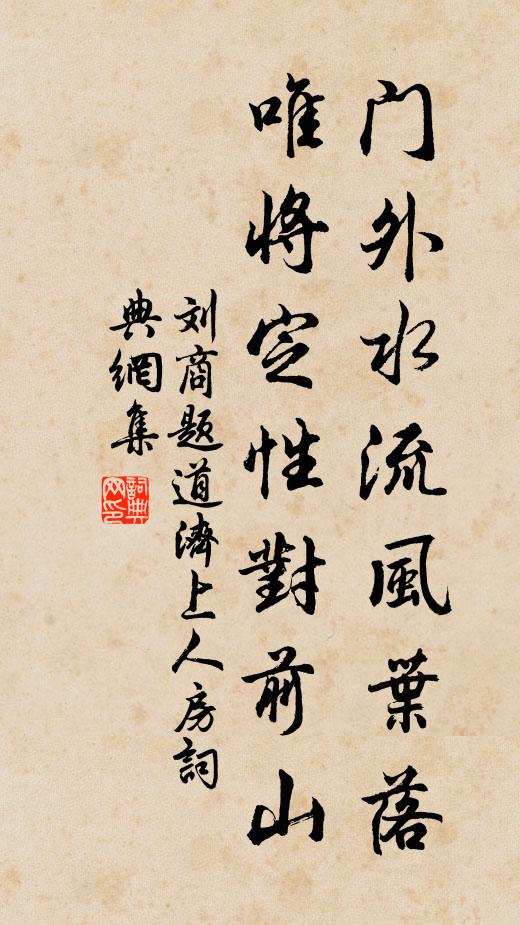 门外水流風葉落
唯將定性對前山
刘商題道濟上人房詞
典網集
詞典
网印